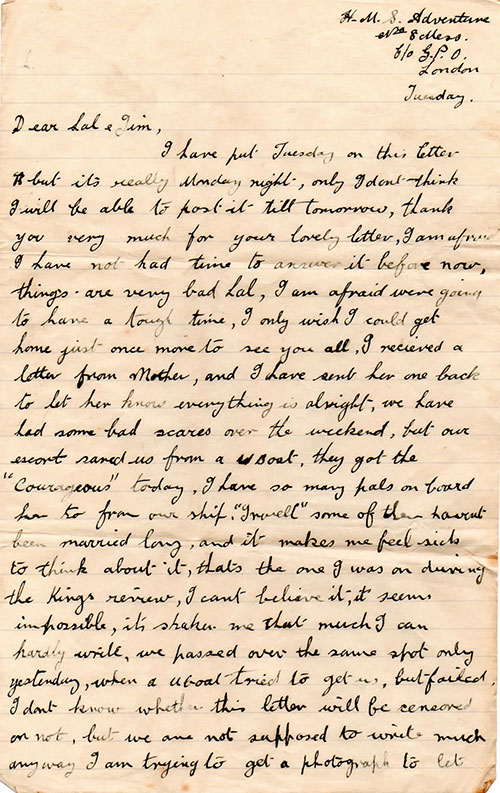 H.M.S. Adventure
No 8 Mess.
C/o G.P.O.
London
Tuesday.
Dear Lal & Jim,
I have put Tuesday on this letter
but its really Monday night, only I dont think
I will be able to post it till tomorrow, thank
you very much for your lovely letter, I am afraid
I have not had time to answer it before now,
things are very bad Lal, I am afraid were going
to have a tough time, I only wish I could get
home just once more to see you all, I recieved a
letter from Mother, and I have sent her one back
to let her know everything is alright, we have
had some bad scares over the weekend, but our
escort saved us from a u Boat, they got the
"Courageous" today, I have so many pals on board
her to from our ship, some of them havent
been married long, and it makes me feel sick
to think about it, thats the one I was on during
the Kings review, I cant believe it, it seems
impossible, its shaken me that much I can
hardly write, we passed over the same spot only
yesterday, when a uboat tried to get us, but failed,
I dont know whether this letter will be censored
or not, but we are not supposed to write much
anyway I am trying to get a photograph to let